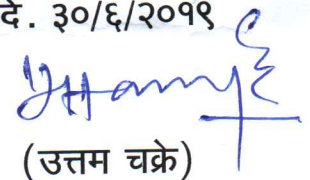 दे. ३०/६/२०१९
(उत्तम चक्रे)